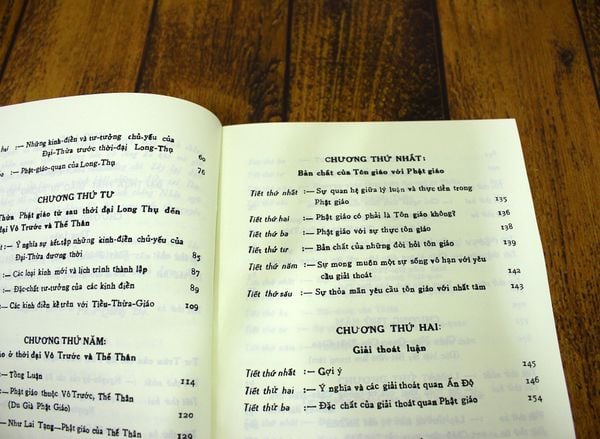 :— Những kinh-điển và tư-tưởng chủ-yếu của
Đại-Thừa trước thời-đại Long-Thụ 60
:— Phật-giáo-quan của Long-Thụ 76
CHƯƠNG THỨ TƯ
Phật giáo từ sau thời đại Long Thụ đến
Vô Trước và Thế Thân
:— Ý nghĩa sự kết-tập những kinh-điển chủ-yếu của
Đại-Thừa đương thời 85
:— Các loại kinh mới và lịch trình thành lập 87
:— Đặc-chất tư-tưởng của các kinh điển 89
:— Các kinh điển kể trên với Tiểu-Thừa-Giáo 109
CHƯƠNG THỨ NĂM:
ở thời đại Vô Trước và Thế Thân
:— Tổng Luận 114
:— Phật-giáo thuộc Vô Trước, Thế Thân
(Du Già Phật Giáo) 120
:— Như Lai Tạng—Phật-giáo của Thế Thân 129
CHƯƠNG THỨ NHẤT:
Bản chất của Tôn giáo với Phật giáo
Tiết thứ nhất :— Sự quan hệ giữa lý luận và thực tiễn trong
Phật giáo 135
Tiết thứ hai :— Phật giáo có phải là Tôn giáo không? 136
Tiết thứ ba :— Phật giáo với sự thực tôn giáo 138
Tiết thứ tư :— Bản chất của những đòi hỏi tôn giáo 139
Tiết thứ năm :— Sự mong muốn một sự sống vô hạn với yêu
cầu giải thoát 142
Tiết thứ sáu :— Sự thỏa mãn yêu cầu tôn giáo với nhất tâm 143
CHƯƠNG THỨ HAI:
Giải thoát luận
Tiết thứ nhất :— Gợi ý 145
Tiết thứ hai :— Ý nghĩa và các giải thoát quan Ấn Độ 146
Tiết thứ ba :— Đặc chất của giải thoát quan Phật giáo 154